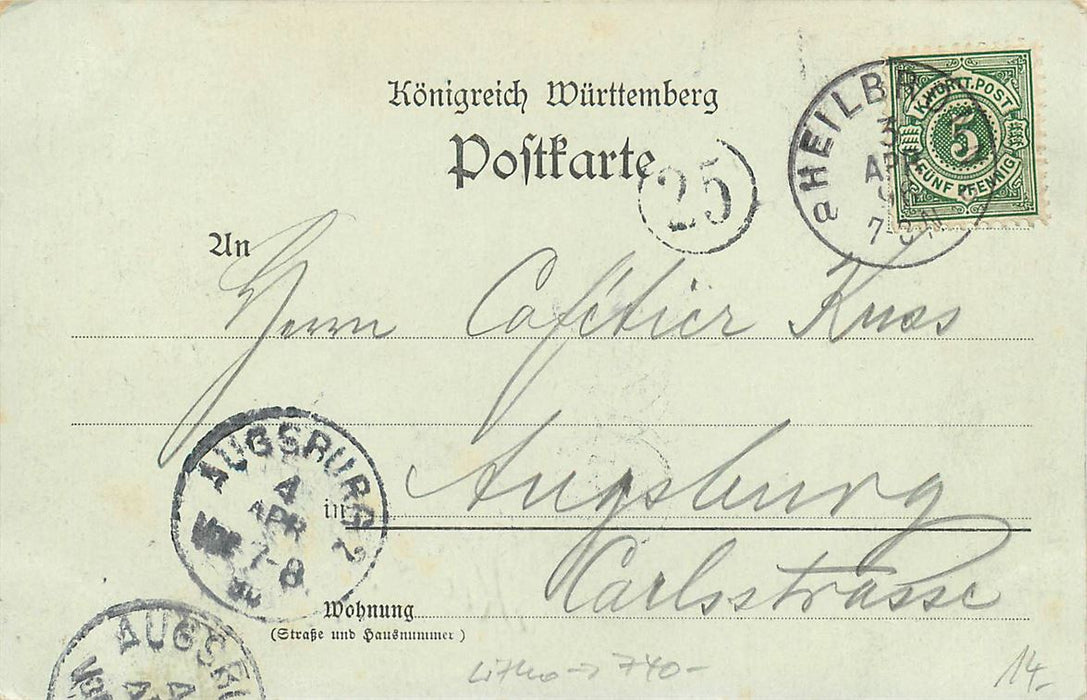 Königreich Württemberg
Postkarte
25
HEILBR
3
APR
7-8 N
a
K.WÜRTT.POST
5
FÜNF PFENNIG
An
Herrn Cafétier Kuss
AUGSBURG
4
APR
7-8
2
in Augsburg
Wohnung Carlsstrasse
(Straße und Hausnummer)
AUGSBU
4
Litho → 740-
14.-